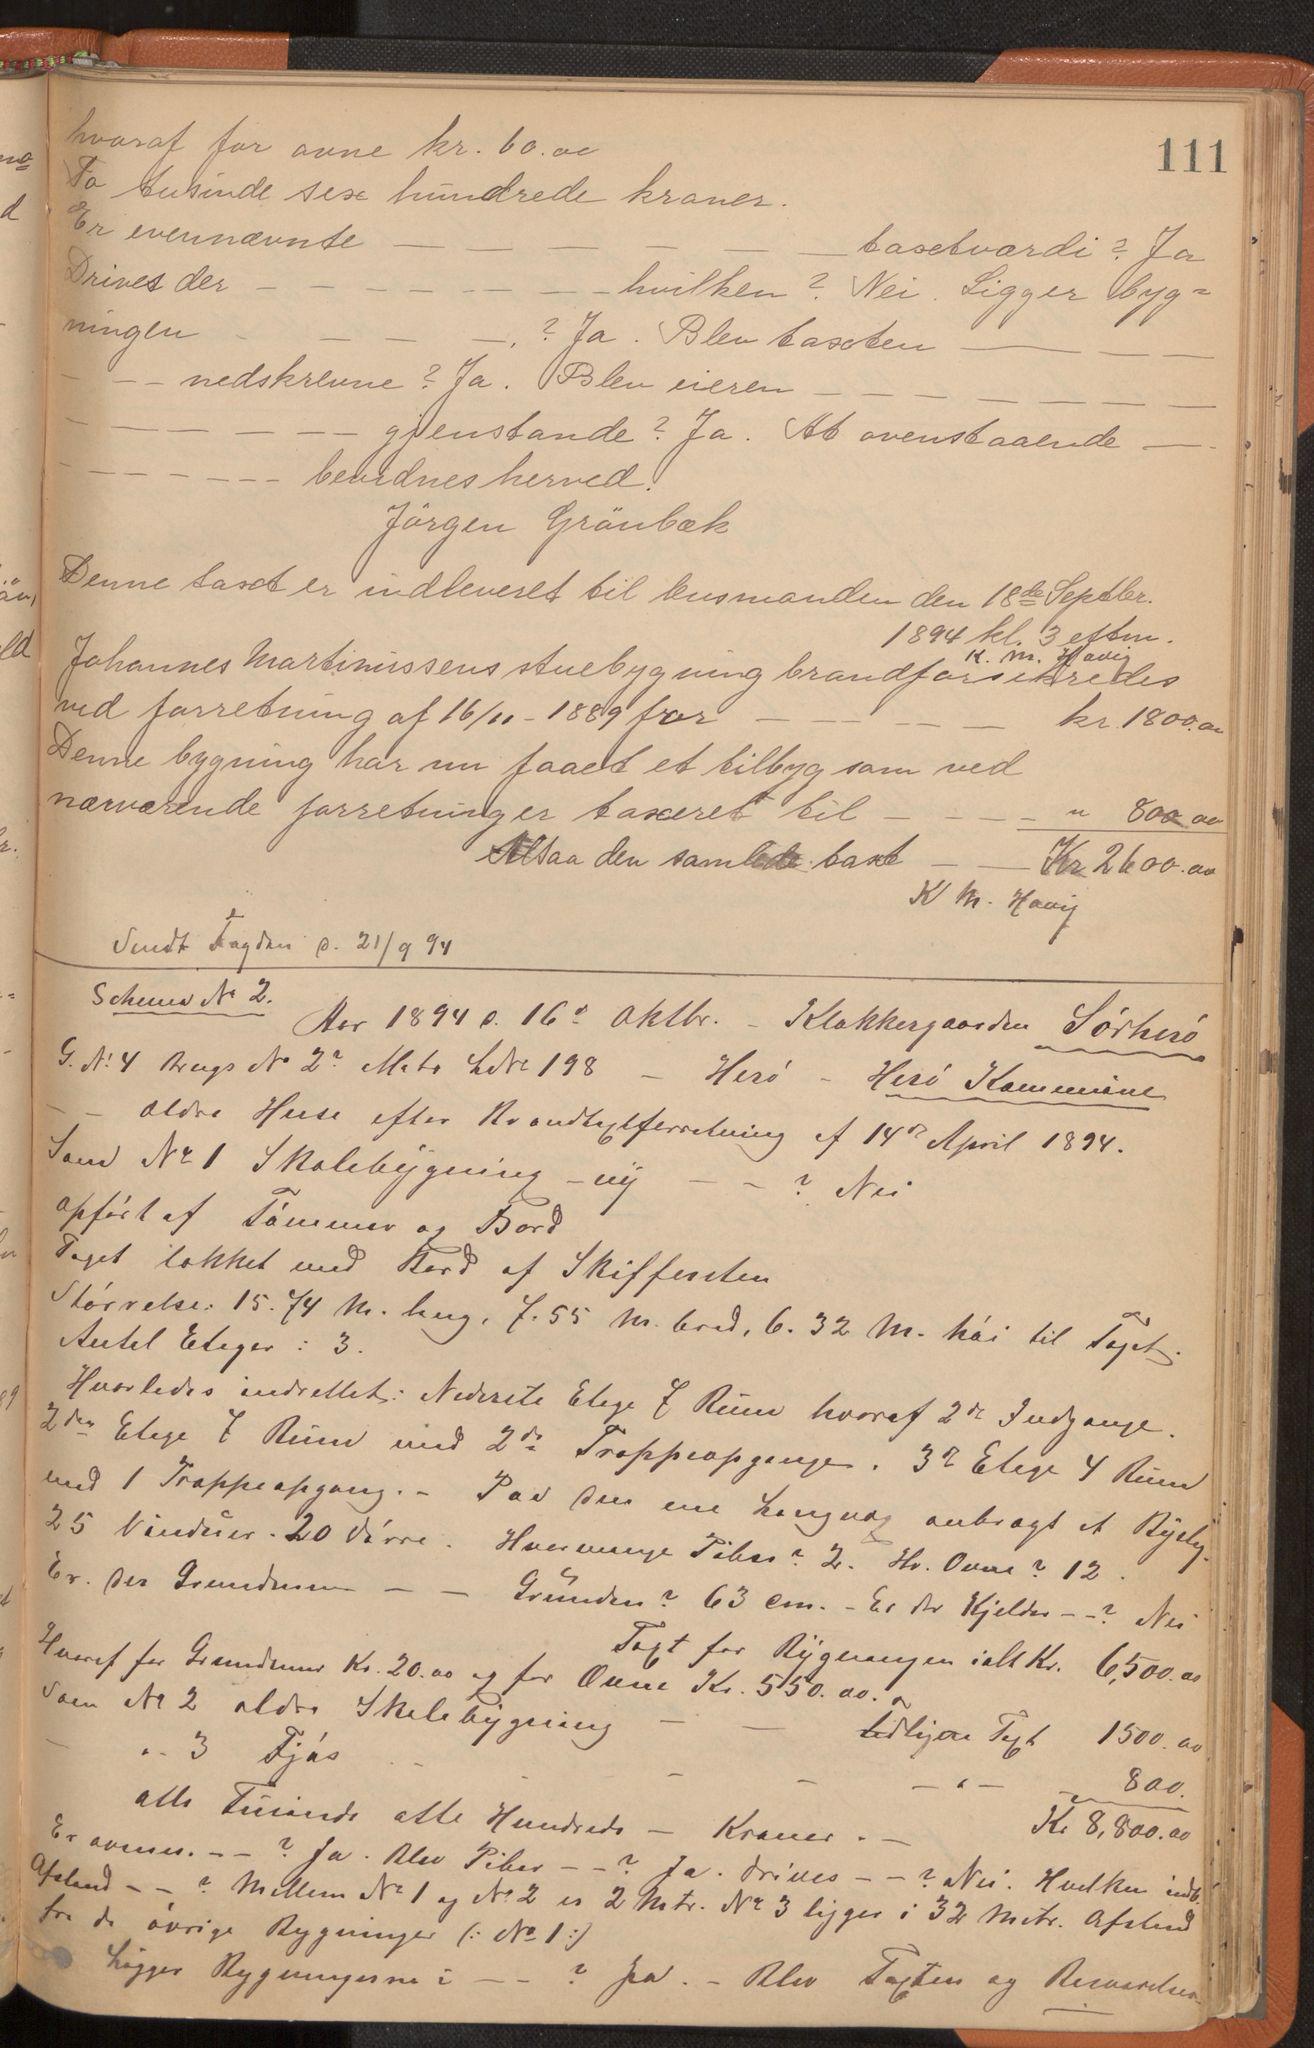 111
hvoraf for ovne kr. 60.00
To tusinde sex hundrede kroner.
Er evennævnte — — — — — — taxtværdi? Ja
Drives der — — — — — — — hvilken? Nei. Ligger byg=
ningen — — — — —.? Ja. Blev taxten — — — —
— — — nedskrevne? Ja. Blev eieren — — — — — — —
— — — — — — gjenstande? Ja. At ovenstaaende — —
— — — — — bevidnes herved.
Jörgen Grönbæk
Denne taxt er indleveret til lensmanden den 18de Septbr.
1894 kl. 3 eftm.
K. M. Havig
Johannes Martinussens stuebygning brandforsikredes
ved forretning af 16/11 - 1889 for — — — — — kr. 1800.00
Denne bygning har nu faaet et tilbyg som ved
nærværende forretninger taxeret til — — — — " 800.00
Altsaa den samlede taxt — — Kr 2600.00
K M. Havig
Sendt Fogden d. 21/9 94
Schema No 2.
Aar 1894 d. 16de Oktbr. - Klokkergaarden Sörherö
G. No 4 Brugs No 2 Matr LNo 198 - Herö - Herö Kommune
— — ældre Huse efter Brandtaxtforretning af 14de April 1894.
Som No 1 Skolebygning - ny — — ? Nei
opfört af Tömmer og Bord
Taget tækket med Bord af Skiffersten
Störrelse: 15.74 M. lang, 7.55 M. bred, 6.32 M. höi til Taget.
Antal Etager: 3.
Hvorledes indrettet: Nederste Etage 7 Rum hvoraf 2de Indgange.
2den Etage 7 Rum med 2de Trappeopgange. 3de Etage 4 Rum
med 1 Trappeopgang. - Paa den ene Langvæg anbragt et
25 Vinduer. 20 Dörre. Hvormange Piber? 2. Hv. Ovne? 12.
Er der Grundmur — — Grunden? 63 cm. - Er der Kjelder - -? Nei
Taxt for Bygningen ialt Kr. 6,500.00
Hvoraf for Grundmur Kr. 20.00 og for Ovne Kr. 550.00.
Som No 2 ældre Skolebygning — — tidligere Taxt 1500.00
— " 3 Fjös — — — — — " — 800.
otte Tusinde otte Hundrede — Kroner. — Kr 8,800.00
Er ovnen. - - ? Ja. Blev Piber - - ? Ja. drives - - ? Nei. Hvilken indb.
Afstand - - ? Mellem No 1 og No 2 er 2 Mtr. No 3 ligger i 32 Mtr. Afstand
fra de övrige Bygninger (: No 1 :)
Ligger Bygningerne i — — ? Ja. - Blev Taxten og Besvarelsen